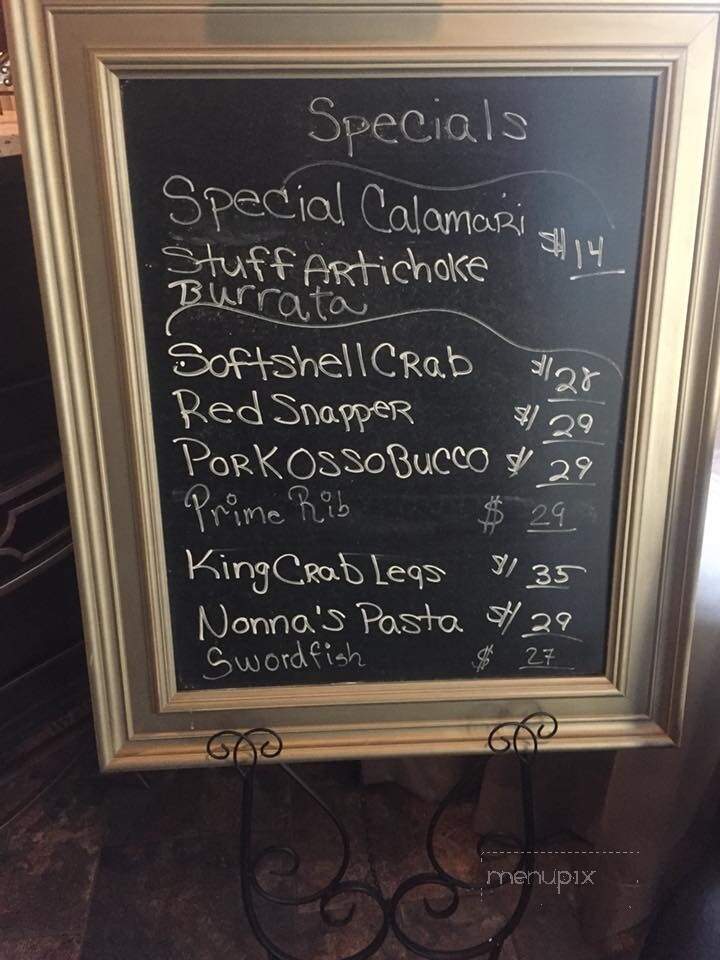 Specials
Special Calamari
$14
Stuff Artichoke
Burrata
Softshell Crab $28
Red Snapper $29
Pork Osso Bucco $29
Prime Rib $29
King Crab Legs $35
Nonna's Pasta $29
Swordfish $27
menupix